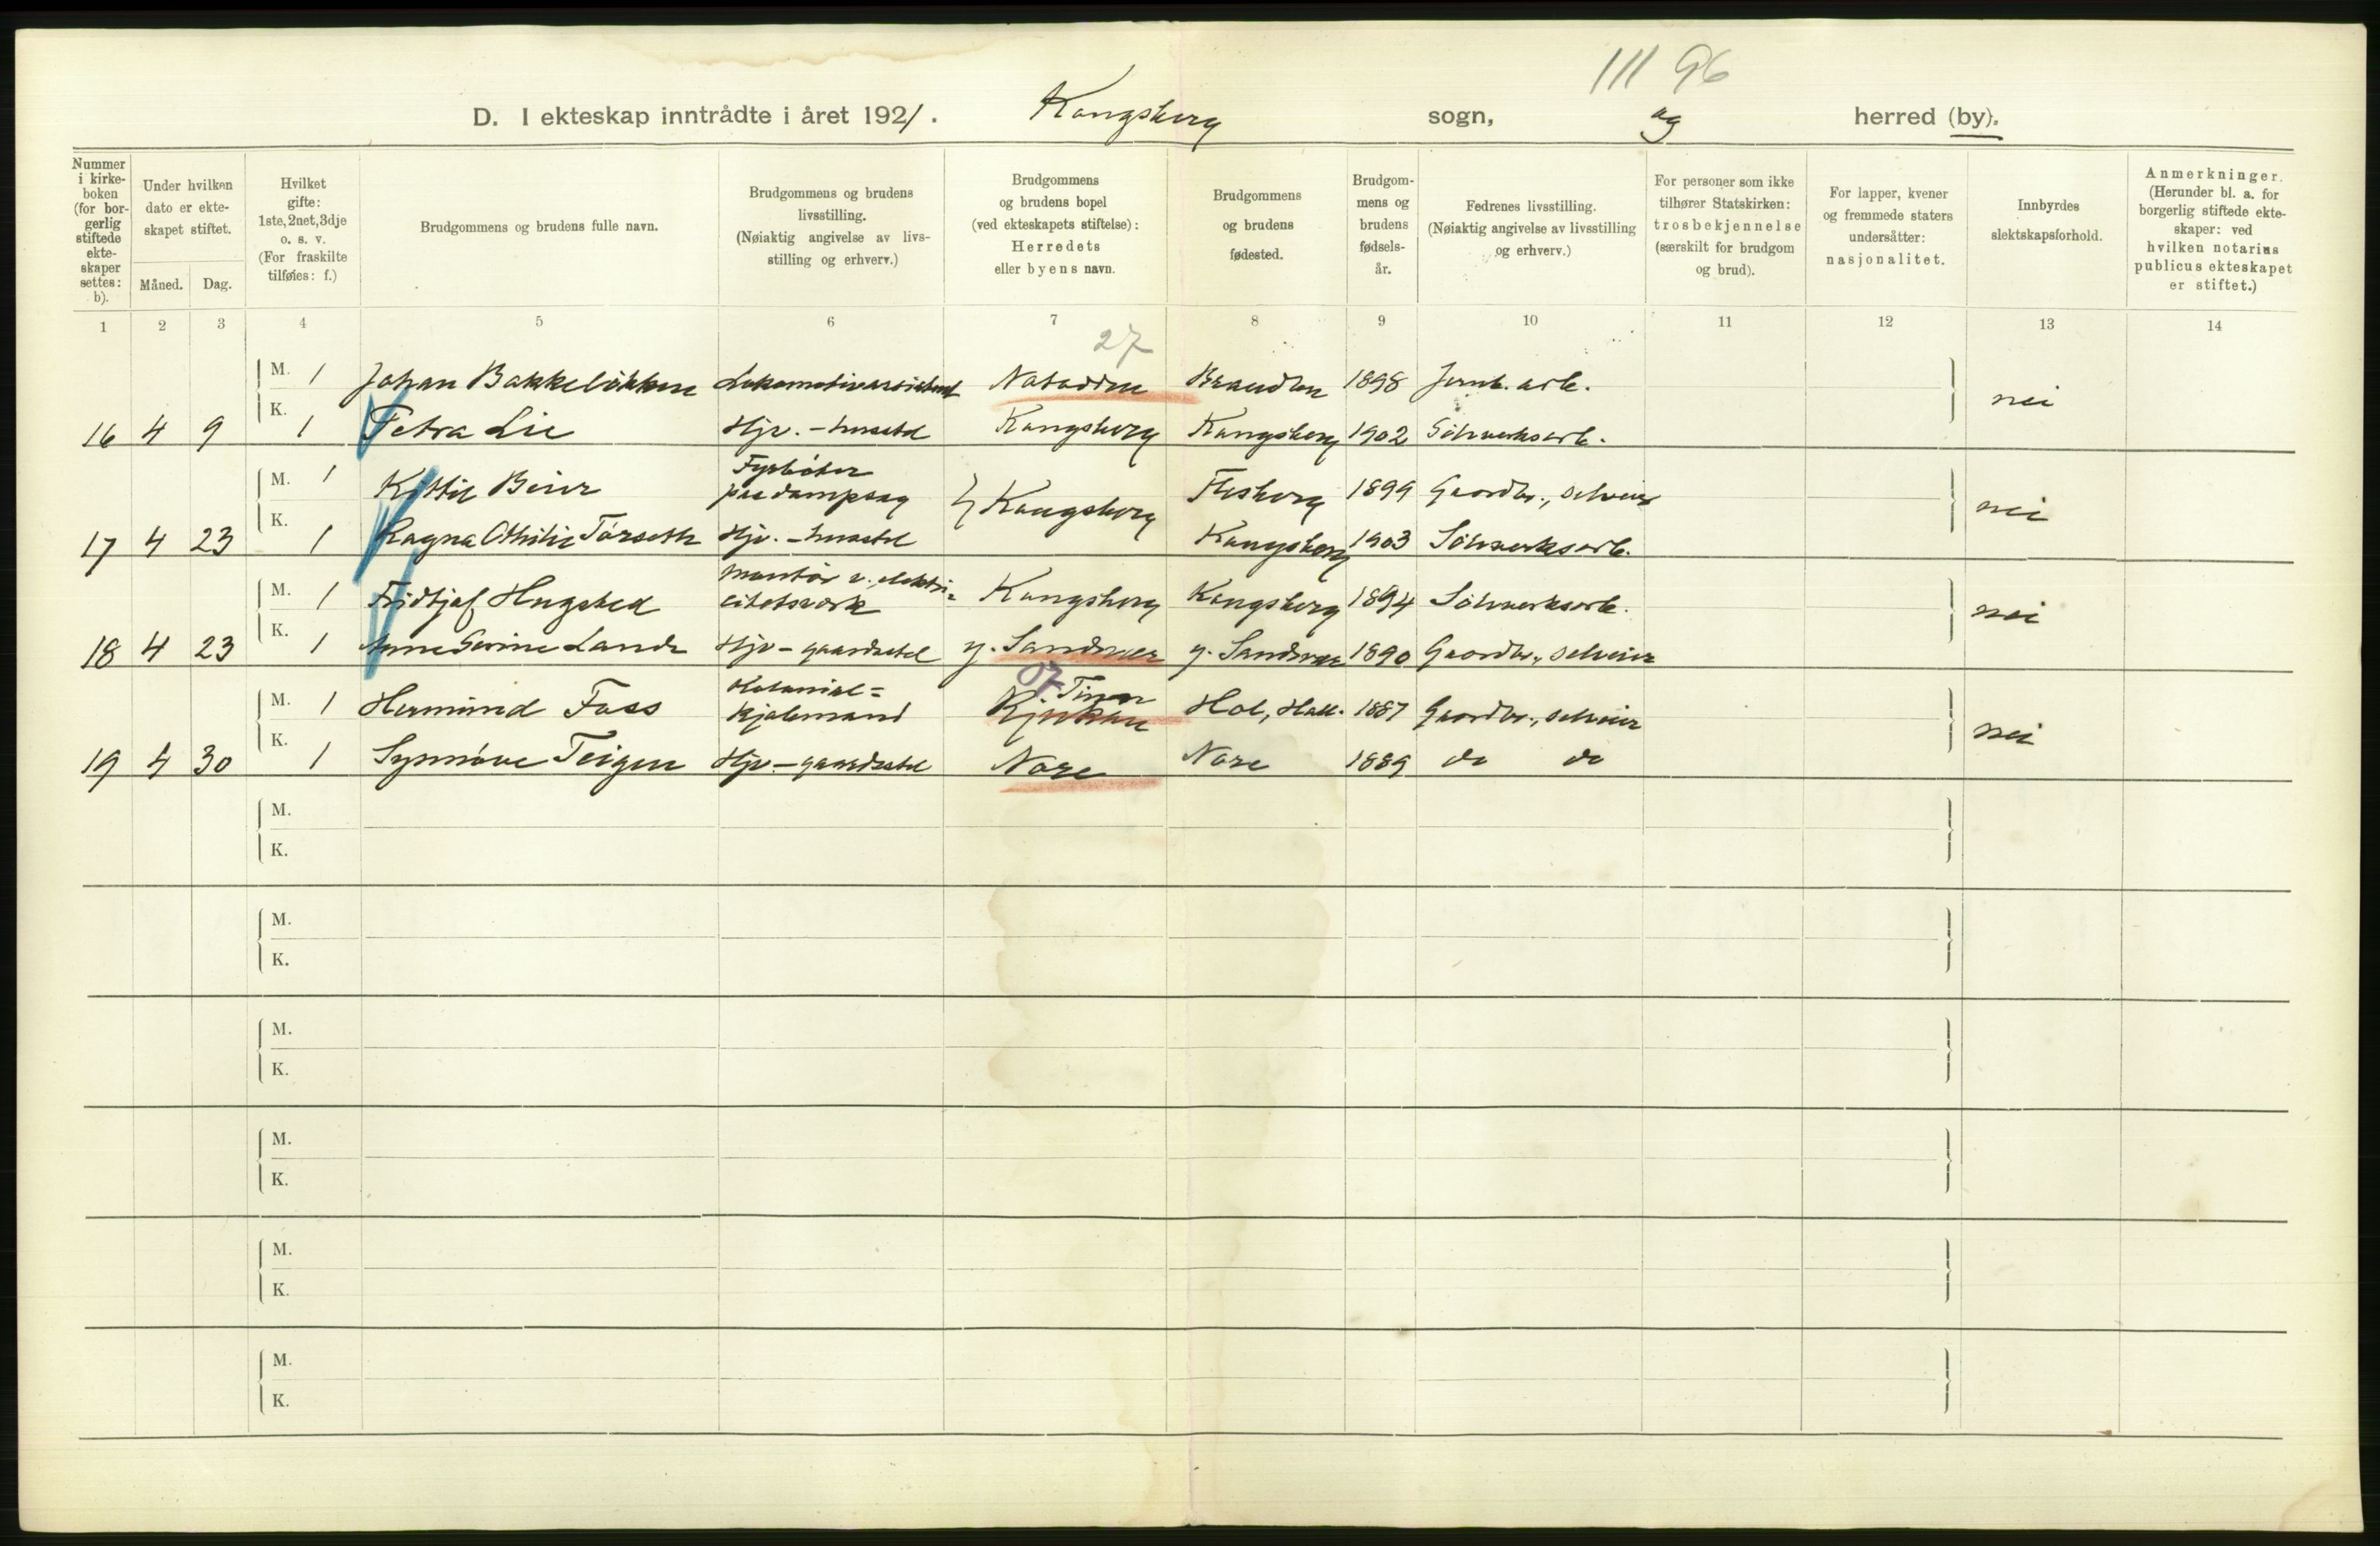 111 96
D. I ekteskap inntrådte i året 1921. Kongsberg sogn, og herred (by).
Nummer i kirkeboken (for borgerlig stiftede ekteskaper settes: b).
Under hvilken dato er ekteskapet stiftet.
Måned. Dag.
Hvilket gifte: 1ste, 2net, 3dje o. s. v. (For fraskilte tilføies: f.)
Brudgommens og brudens fulle navn.
Brudgommens og brudens livsstilling. (Nøiaktig angivelse av livsstilling og erhverv.)
Brudgommens og brudens bopel (ved ekteskapets stiftelse): Herredets eller byens navn.
Brudgommens og brudens fødested.
Brudgommens og brudens fødselsår.
Fedrenes livsstilling. (Nøiaktig angivelse av livsstilling og erhverv.)
For personer som ikke tilhører Statskirken: trosbekjennelse (særskilt for brudgom og brud).
For lapper, kvener og fremmede staters undersåtter: nasjonalitet.
Innbyrdes slektskapsforhold.
Anmerkninger. (Herunder bl. a. for borgerlig stiftede ekteskaper: ved hvilken notarius publicus ekteskapet er stiftet.)
1 2 3 4 5 6 7 8 9 10 11 12 13 14
27
M. 1 Johan Bakkeløkken Lokomotivassistent Notodden Brandbu 1898 Jernb. arb.
nei
16 4 9 K. 1 Petra Lie Hjv. - husstel Kongsberg Kongsberg 1902 Sölvverksarb.
M. 1 Kittil Beier Fyrböter paa dampsag } Kongsberg Flesberg 1899 Gaardbr., selveier
nei
17 4 23 K. 1 Ragna Othilie Törseth Hjv. - husstel Kongsberg 1903 Sölvverksarb.
M. 1 Fridtjof Hugsted Montör v. elektricitetsverk Kongsberg Kongsberg 1894 Sölvverksarb.
nei
18 4 23 K. 1 Anne Serine Lande Hjv - gaardsstel y. Sandsvær y. Sandsvær 1890 Gaardbr., selveier
07 Tinn
M. 1 Hermund Foss Kolonialkjøbmand Rjukan Hol, Hall. 1887 Gaardbr., selveier
nei
19 4 30 K. 1 Synnöve Teigen Hjv. - gaardsstel Nore Nore 1889 do do
M.
K.
M.
K.
M.
K.
M.
K.
M.
K.
M.
K.